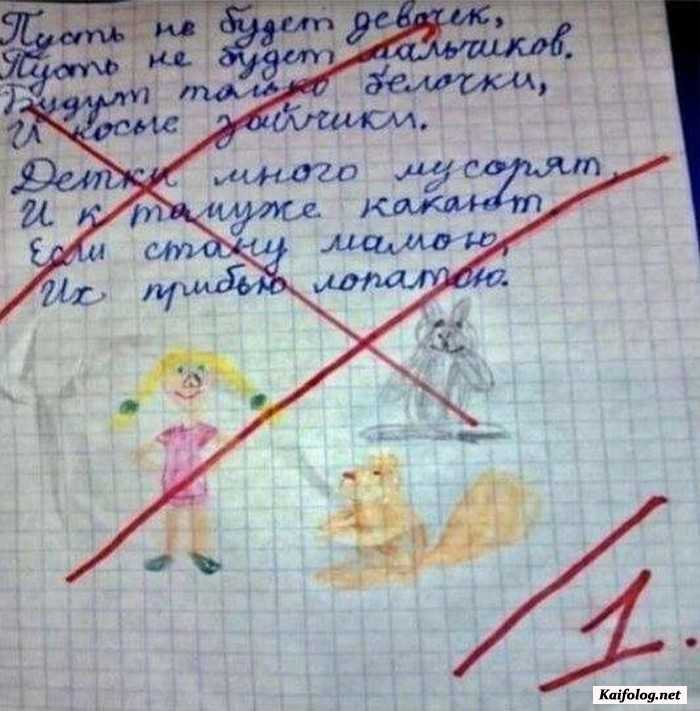 Пусть не будет девочек,
Пусть не будет мальчиков.
Будут только белочки,
И косые зайчики.
Детки много мусорят,
И к томуже какают.
Если стану мамою,
Их прибью лопатою.
1.
Kaifolog.net